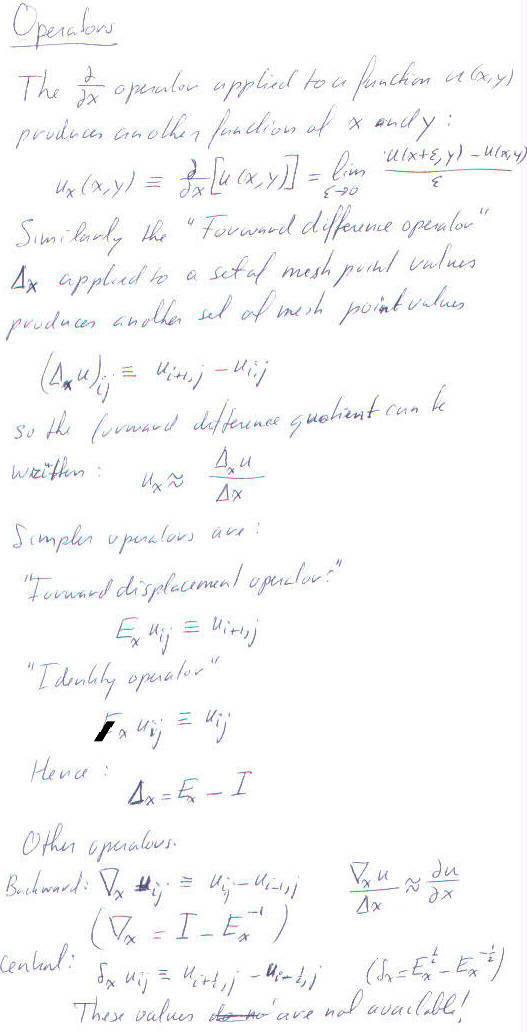 Operators
The ∂/∂x operator applied to a function u(x,y)
produces another function of x and y :
u_x(x,y) ≡ ∂/∂x [u(x,y)] = lim_{ε→0} (u(x+ε,y) - u(x,y))/ε
Similarly the "Forward difference operator"
Δx applied to a set of mesh point values
produces another set of mesh point values
(Δ_x u)_ij ≡ u_i+1,j - u_i,j
so the forward difference quotient can be
written : u_x ≈ Δ_x u / Δx
Simpler operators are :
"Forward displacement operator:"
E_x u_ij ≡ u_i+1,j
"Identity operator"
x u_ij ≡ u_ij
Hence :
Δ_x = E_x - I
Other operators.
Backward: ∇_x u_ij ≡ u_ij - u_i-1,j ∇_x u / Δx ≈ ∂u/∂x
(∇_x = I - E_x^-1)
Central: δ_x u_ij ≡ u_i+½,j - u_i-½,j (δ_x = E_x^½ - E_x^-½)
These values are not available!